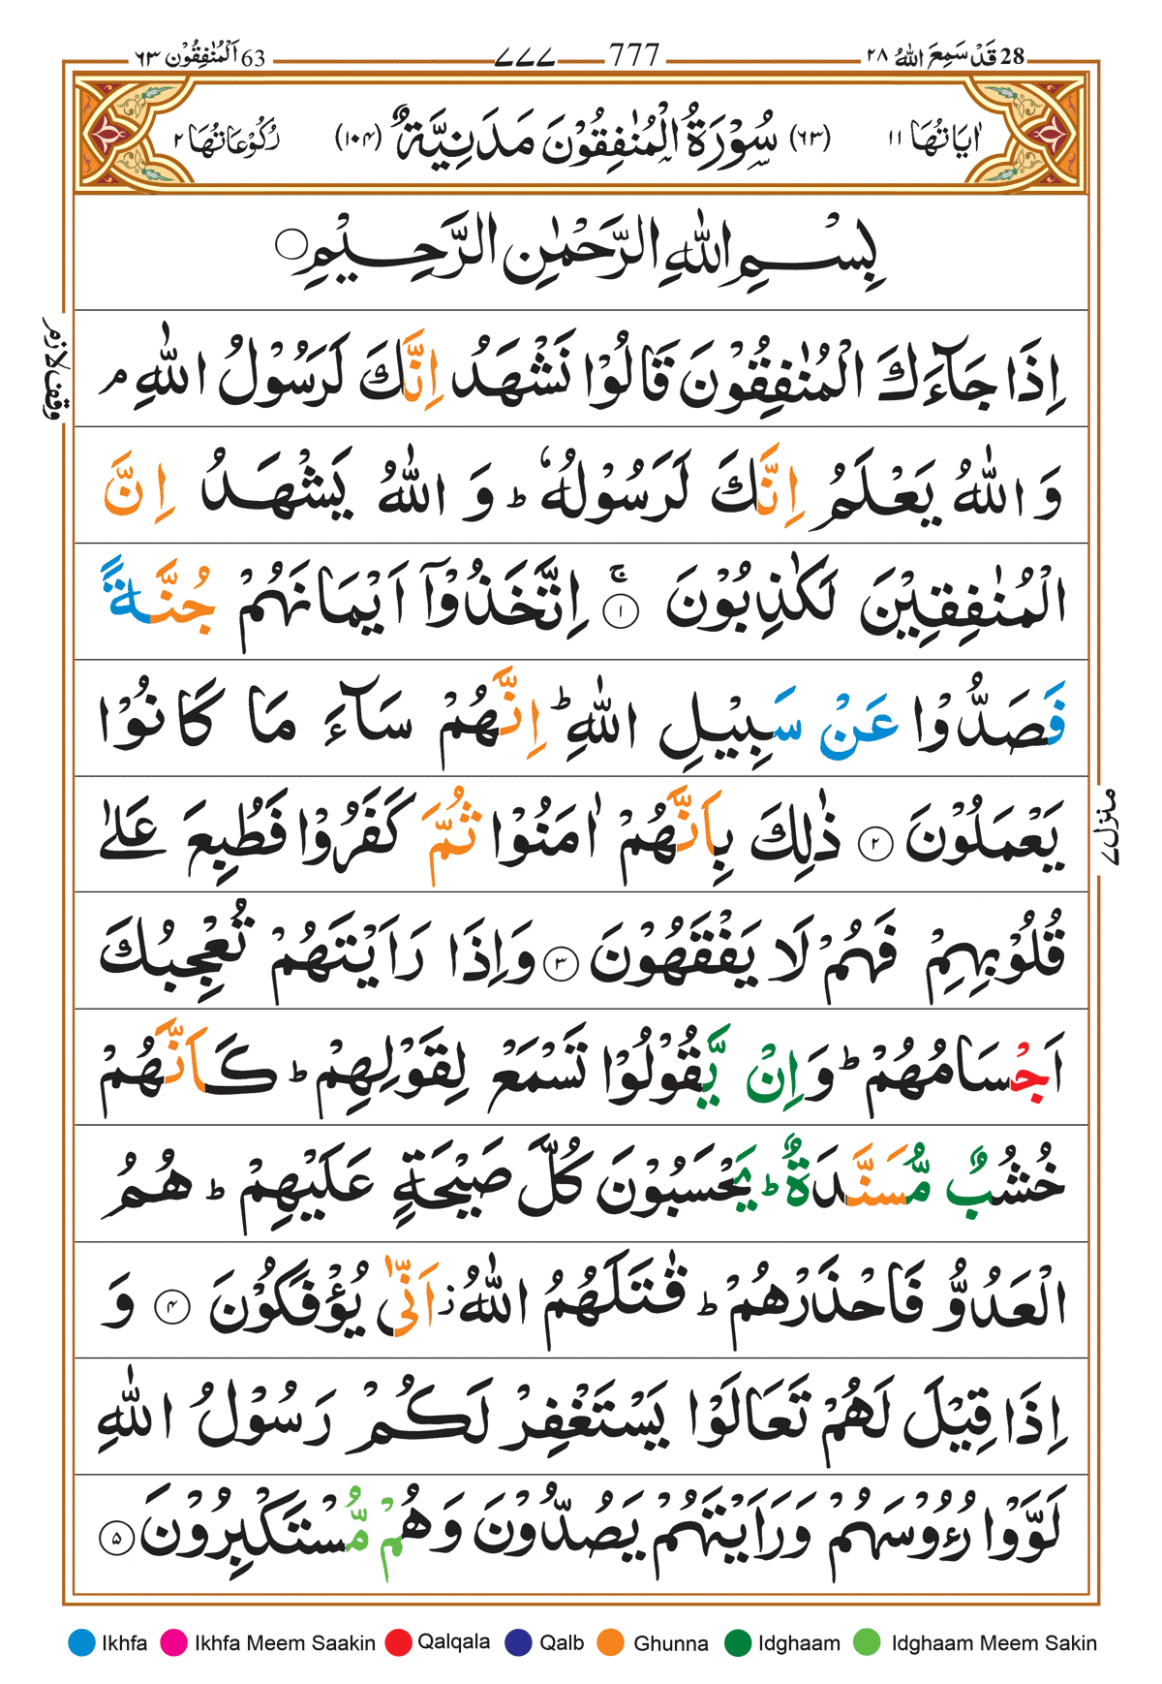 63 اَلْمُنٰفِقُوْن ٦٣ 777 ٧٧٧ 28 قَدْ سَمِعَ اللهُ ٢٨
اٰيَاتُهَا ١١ (٦٣) سُوْرَةُ الْمُنٰفِقُوْنَ مَدَنِيَّةٌ (١٠٤) رُكُوْعَاتُهَا ٢
بِسْمِ اللهِ الرَّحْمٰنِ الرَّحِيْمِ
اِذَا جَآءَكَ الْمُنٰفِقُوْنَ قَالُوْا نَشْهَدُ اِنَّكَ لَرَسُوْلُ اللهِ ۘ
وقف لازم
وَ اللهُ يَعْلَمُ اِنَّكَ لَرَسُوْلُهٗ ؕ وَ اللهُ يَشْهَدُ اِنَّ
الْمُنٰفِقِيْنَ لَكٰذِبُوْنَ ۚ ١ اِتَّخَذُوْۤا اَيْمَانَهُمْ جُنَّةً
فَصَدُّوْا عَنْ سَبِيْلِ اللهِ ؕ اِنَّهُمْ سَآءَ مَا كَانُوْا
يَعْمَلُوْنَ ٢ ذٰلِكَ بِاَنَّهُمْ اٰمَنُوْا ثُمَّ كَفَرُوْا فَطُبِعَ عَلٰى
منزل ٧
قُلُوْبِهِمْ فَهُمْ لَا يَفْقَهُوْنَ ٣ وَاِذَا رَاَيْتَهُمْ تُعْجِبُكَ
اَجْسَامُهُمْ ؕ وَاِنْ يَّقُوْلُوْا تَسْمَعْ لِقَوْلِهِمْ ؕ كَاَنَّهُمْ
خُشُبٌ مُّسَنَّدَةٌ ؕ يَحْسَبُوْنَ كُلَّ صَيْحَةٍ عَلَيْهِمْ ؕ هُمُ
الْعَدُوُّ فَاحْذَرْهُمْ ؕ قٰتَلَهُمُ اللهُ ؗ اَنّٰى يُؤْفَكُوْنَ ٤ وَ
اِذَا قِيْلَ لَهُمْ تَعَالَوْا يَسْتَغْفِرْ لَكُمْ رَسُوْلُ اللهِ
لَوَّوْا رُءُوْسَهُمْ وَرَاَيْتَهُمْ يَصُدُّوْنَ وَهُمْ مُّسْتَكْبِرُوْنَ ٥
Ikhfa Ikhfa Meem Saakin Qalqala Qalb Ghunna Idghaam Idghaam Meem Sakin